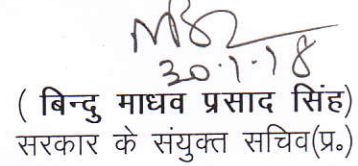 30.1.18
( बिन्दु माधव प्रसाद सिंह)
सरकार के संयुक्त सचिव(प्र॰)